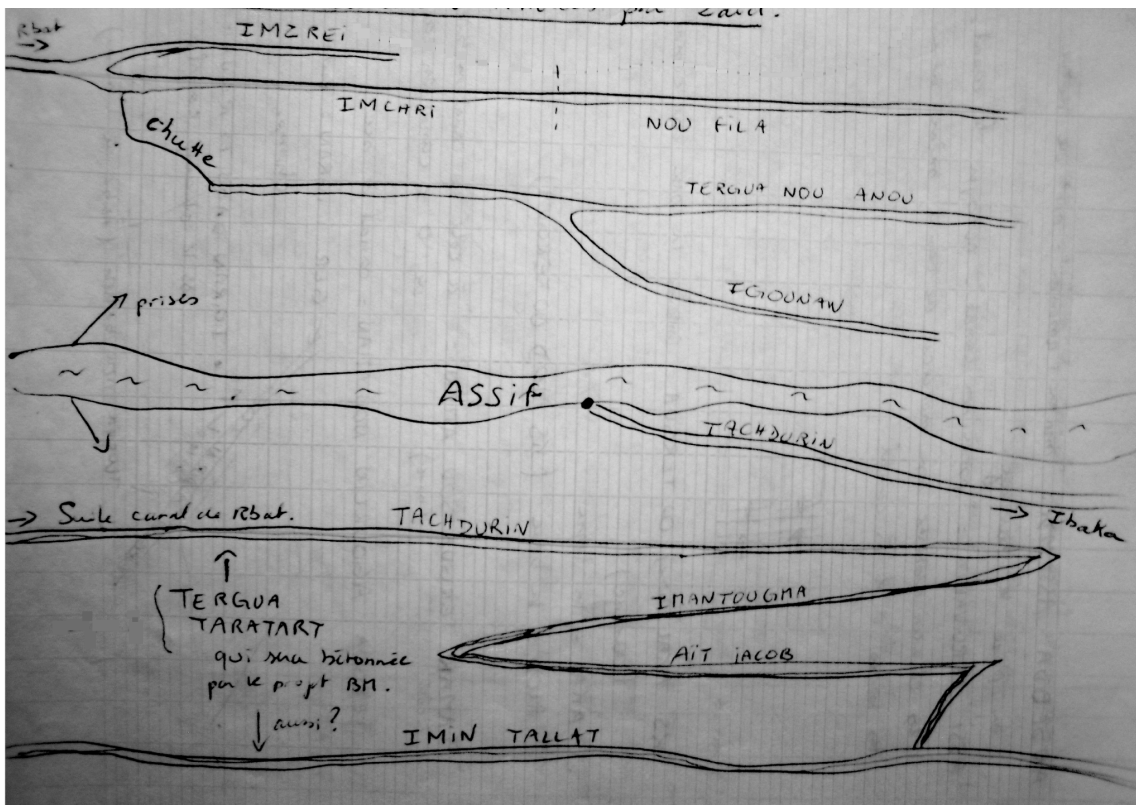 par Zaid.
Rbat
IMZREI
IMCHRI
NOU FILA
chutte
TERGUA NOU ANOU
IGOUNAN
prises
ASSIF
TACHDURIN
Ibaka
Suite canal de Rbat.
TACHDURIN
TERGUA
TARATART
qui sera bétonnée
par le projt BM.
aussi?
IMANTOUGMA
AÏT JACOB
IMIN TALLAT